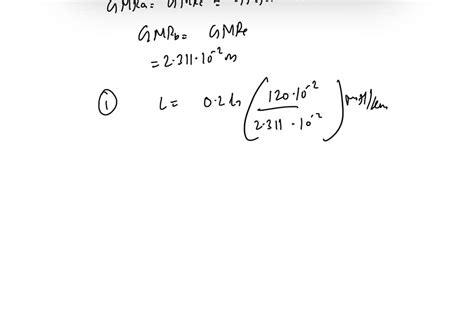 GMRa = GMRc =
GMRb = GMRc
= 2.311·10⁻² m
① L = 0.2 ln (120·10⁻² / 2.311·10⁻²) mH/km